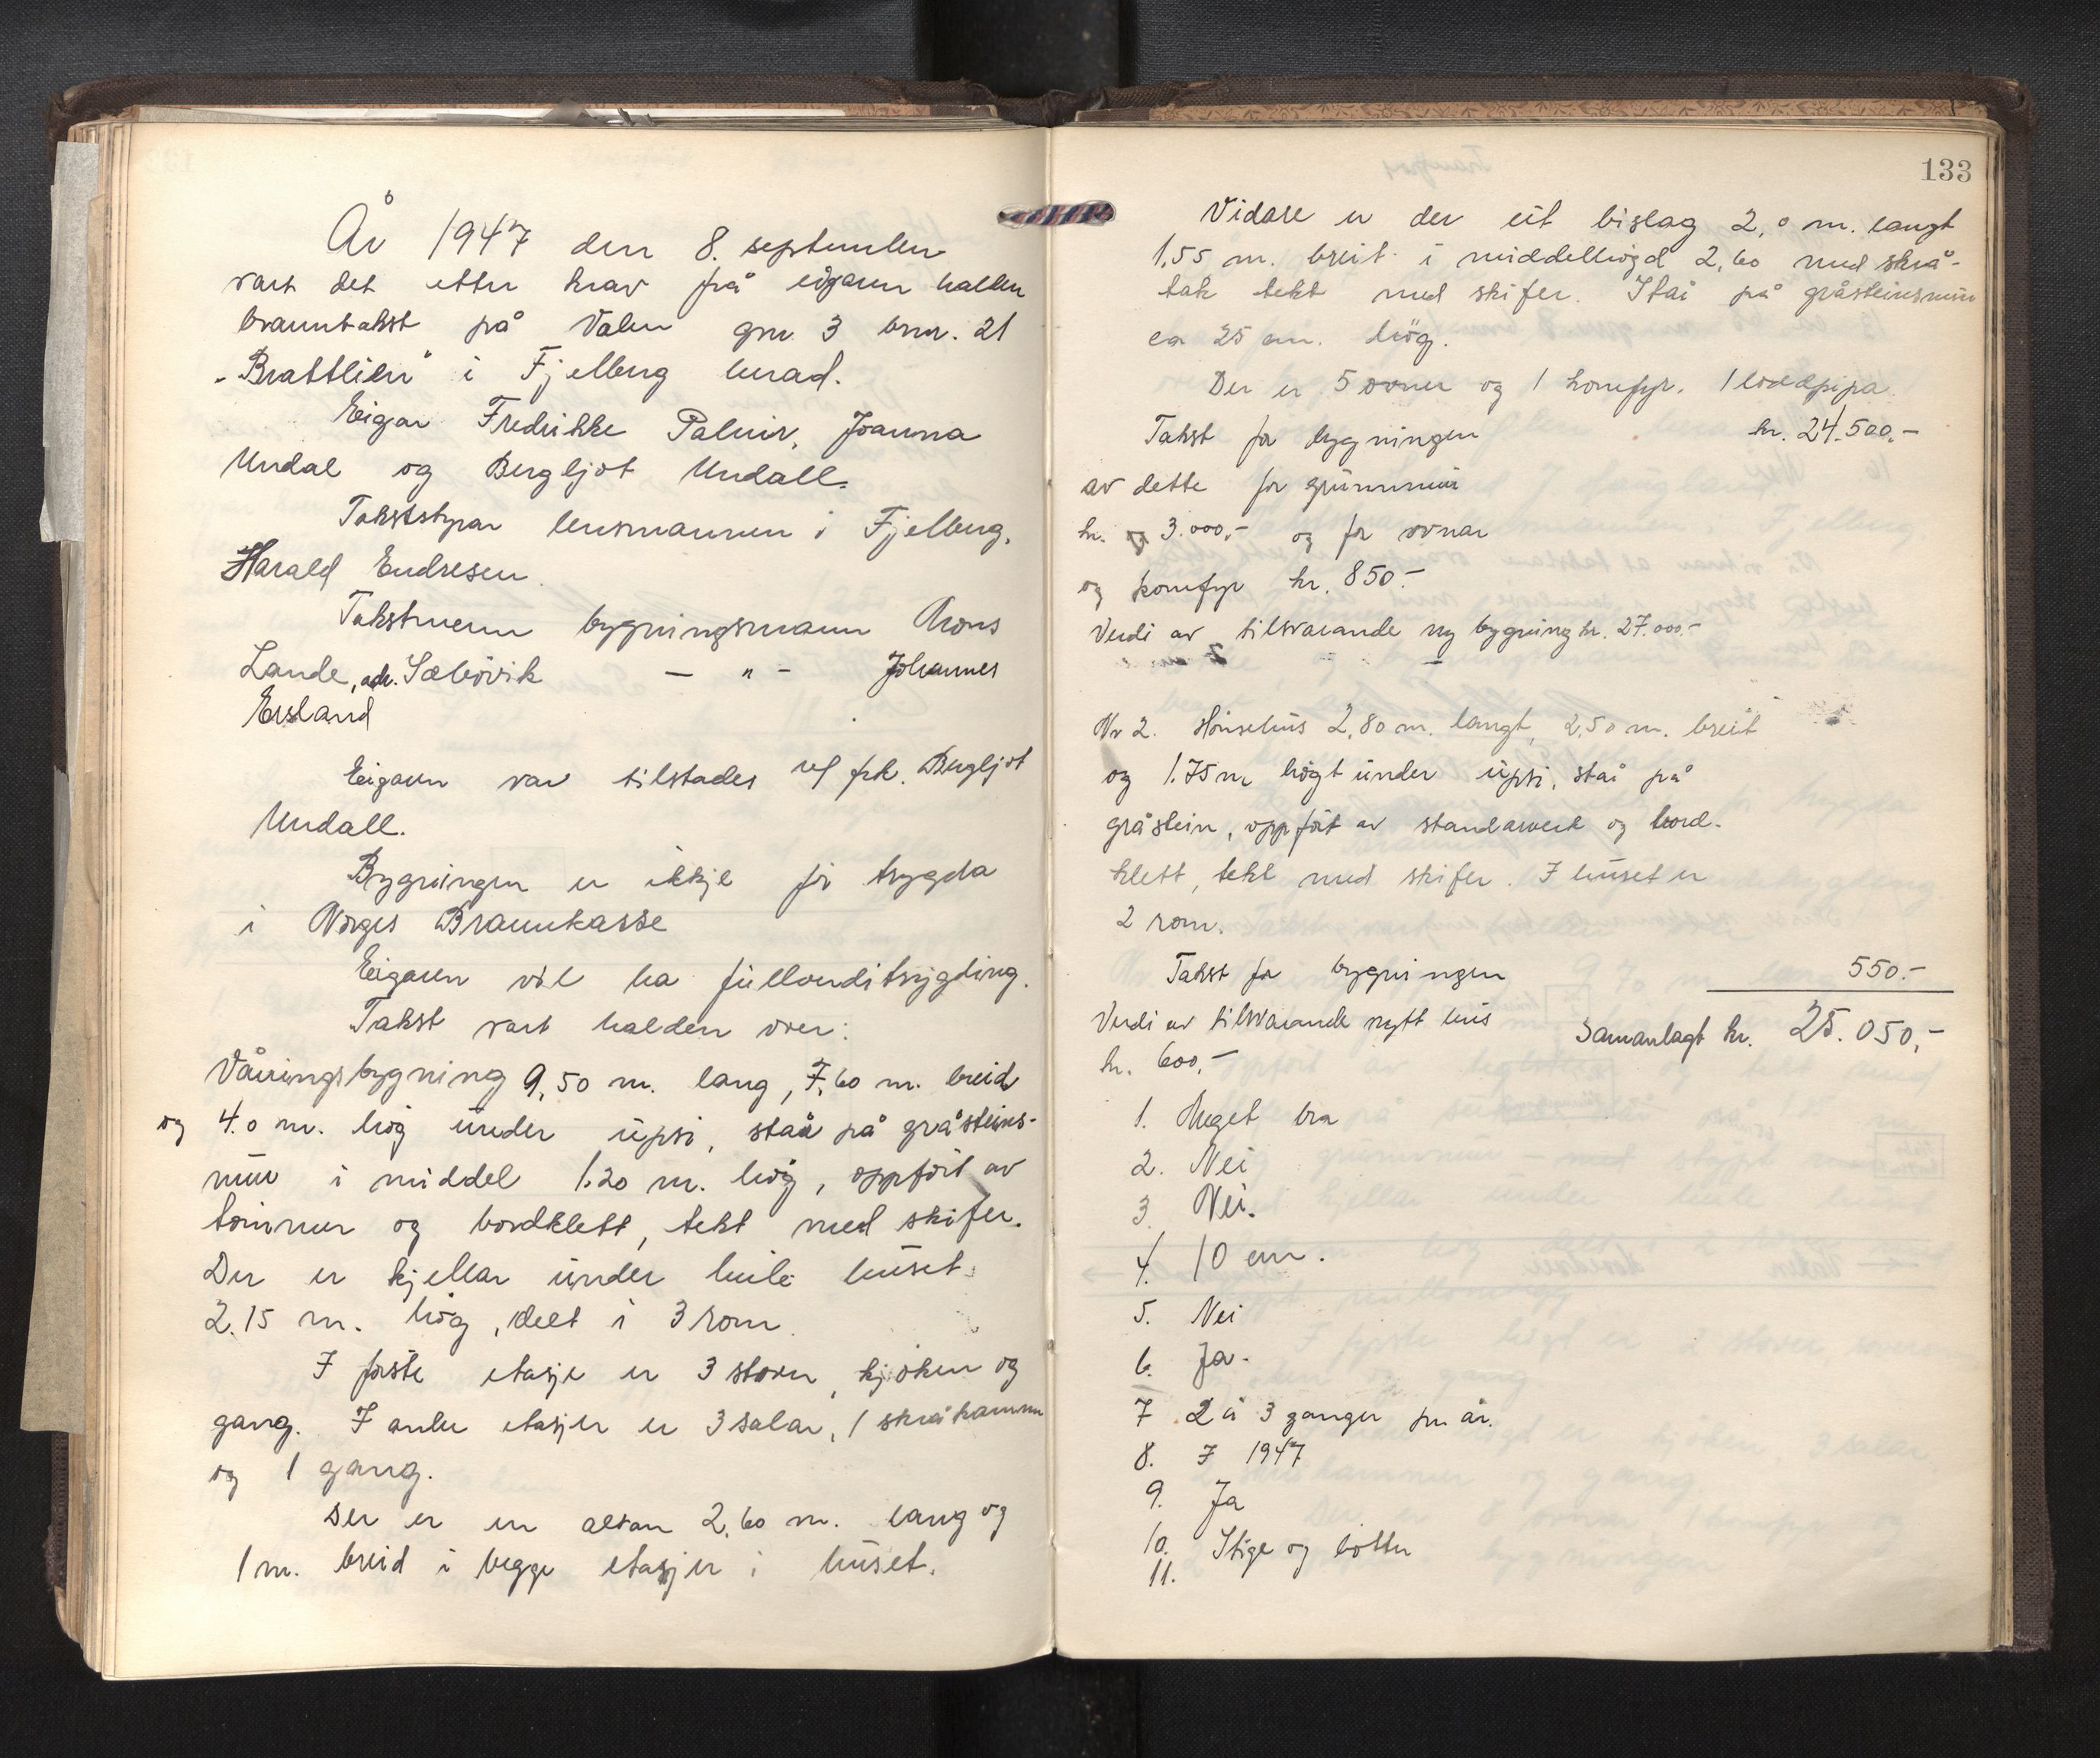 År 1947 den 8. september
vart det etter krav frå eigaren halden
branntakst på Valen gnr. 3 bnr. 21
"Brattlien" i Fjelberg herad.
Eigar Fredrikke Palmir, Joanna
Undal og Bergljot Undall.
Takststyrar lensmannen i Fjelberg,
Harald Endresen.
Takstmenn bygningsmann Mons
Lande, adr. Sæbövik — " — Johannes
Ersland
Eigaren var tilstades v/ frk. Bergljot
Undall.
Bygningen er ikkje för trygda
i Norges Brannkasse
Eigaren vil ha fullverditrygding.
Takst vart halden over:
Våningsbygning 9,50 m. lang, 7,60 m. breid
og 4.0 m. hög under upsi, står på gråsteins-
mur i middel 1.20 m. hög, oppfört av
tömmer og bordklett, tekt med skifer.
Der er kjellar under heile huset
2.15 m. hög, delt i 3 rom
I förste etasje er 3 stover, kjöken og
gang. I andre etasjen er 3 salar, 1 skråkammer
og 1 gang.
Der er en altan 2,60 m. lang og
1 m. breid i begge etasjer i huset.
133
Vidare er der eit bislag 2,0 m. langt
1,55 m. breit i middelhögd 2,60 med skrå-
tak tekt med skifer. Står på gråsteinsmur
ca 25 cm. hög.
Der er 5 ovner og 1 komfyr. 1 loddpipa
Takst for bygningen kr. 24.500.-
av dette for grunnmur
kr. 3.000,- og for ovnar
og komfyr kr. 850.-
Verdi av tilsvarande ny bygning kr. 27.000.-
Nr 2. Hönsehus 2,80 m. langt, 2,50 m. breit
og 1.75 m högt under upsi, står på
gråstein, oppfört av standarverk og bord-
klett, tekt med skifer. I huset er
2 rom.
Takst for bygningen 550.-
Verdi av tilsvarande nytt hus
Samanlagt kr. 25.050,-
kr. 600,-
1. Meget bra
2. Nei
3. Nei.
4. 10 cm.
5. Nei
6. Ja.
7. 2 à 3 ganger pr. år.
8. I 1947
9. Ja
10. Stige og bötter
11.